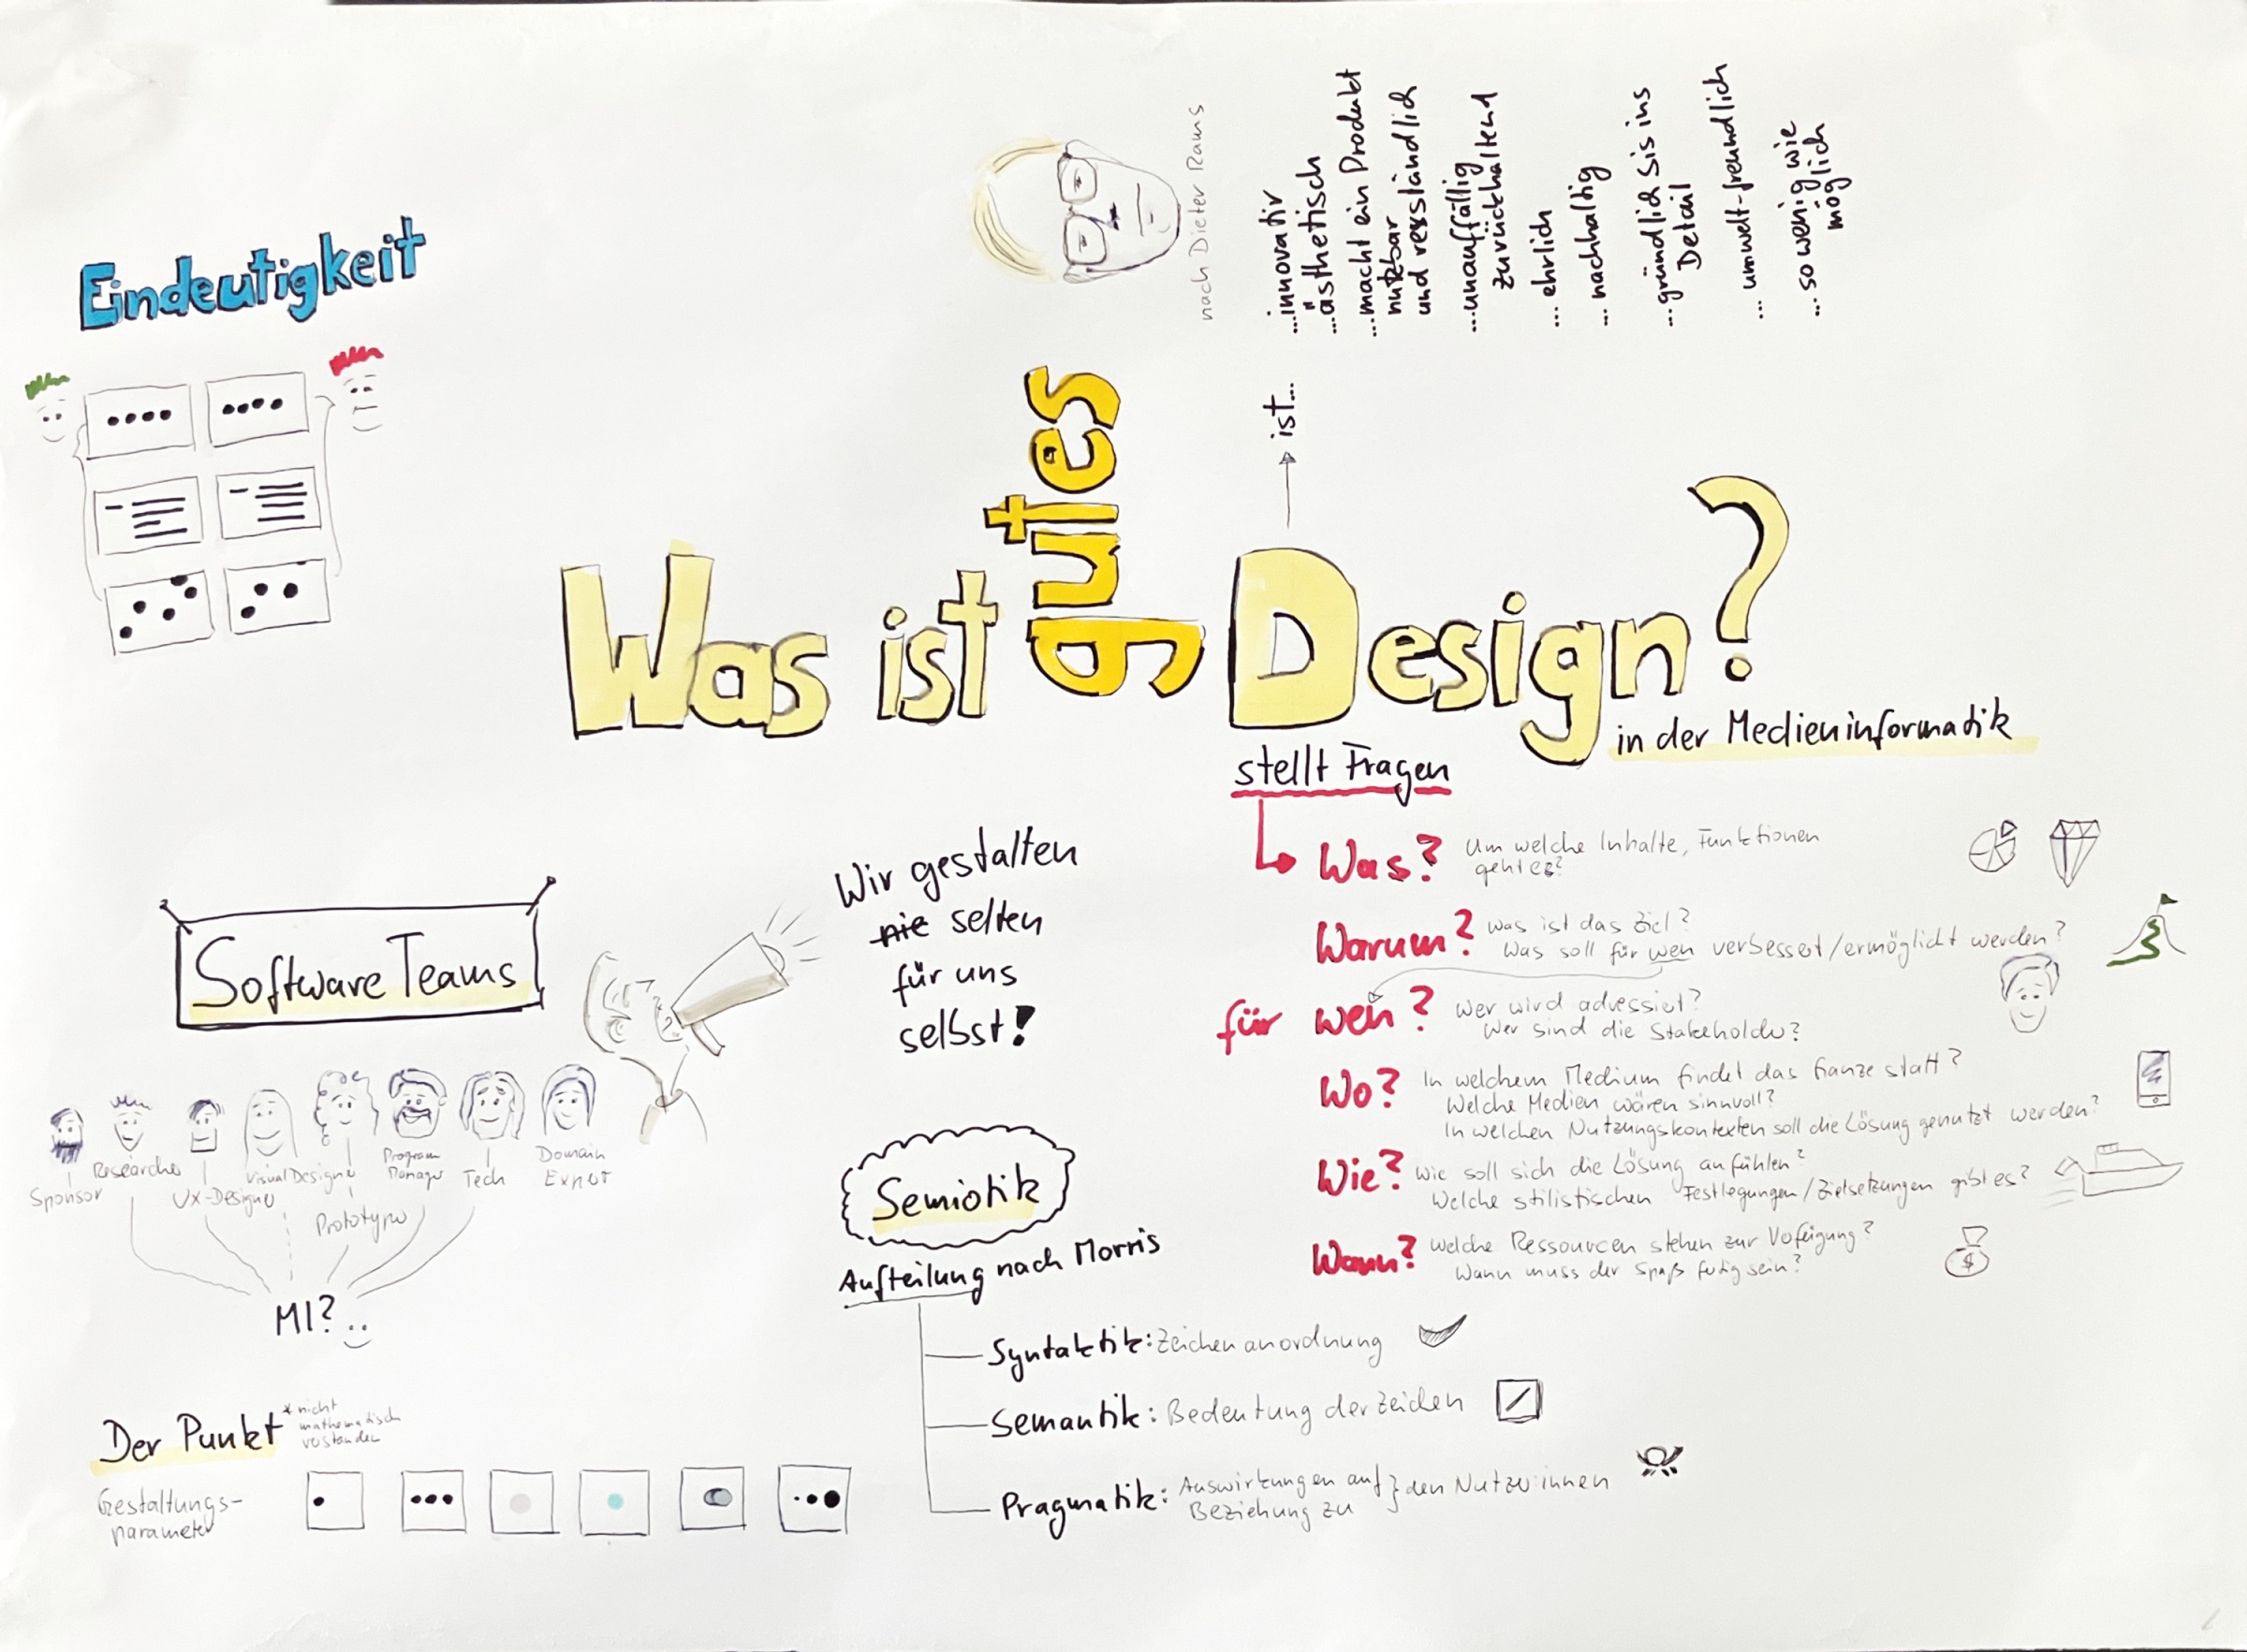 Eindeutigkeit
nach Dieter Rams
...innovativ
...ästhetisch
...macht ein Produkt
nutzbar
und verständlich
...unauffällig
zurückhaltend
... ehrlich
... nachhaltig
...gründlich bis ins
Detail
... umwelt-freundlich
... so wenig wie
möglich
ist...
Was ist gutes Design?
in der Medieninformatik
stellt Fragen
Was? Um welche Inhalte, Funktionen
geht es?
Warum? Was ist das Ziel?
Was soll für wen verbessert/ermöglicht werden?
für wen? Wer wird adressiert?
Wer sind die Stakeholder?
Wo? In welchem Medium findet das Ganze statt?
Welche Medien wären sinnvoll?
In welchen Nutzungskontexten soll die Lösung genutzt werden?
Wie? Wie soll sich die Lösung anfühlen?
Welche stilistischen Festlegungen/Zielsetzungen gibt es?
Wann? Welche Ressourcen stehen zur Verfügung?
Wann muss der Spaß fertig sein?
$
Wir gestalten
nie selten
für uns
selbst!
Software Teams
Sponsor
Researcher
UX-Designer
Visual Designer
Prototyper
Program
Manager
Tech
Domain
Expert
MI?
Semiotik
Aufteilung nach Morris
Syntaktik: Zeichenanordnung
Semantik: Bedeutung der Zeichen
Pragmatik: Auswirkungen auf
Beziehung zu } den Nutzer:innen
Der Punkt
* nicht
mathematisch
verstanden
Gestaltungs-
parameter